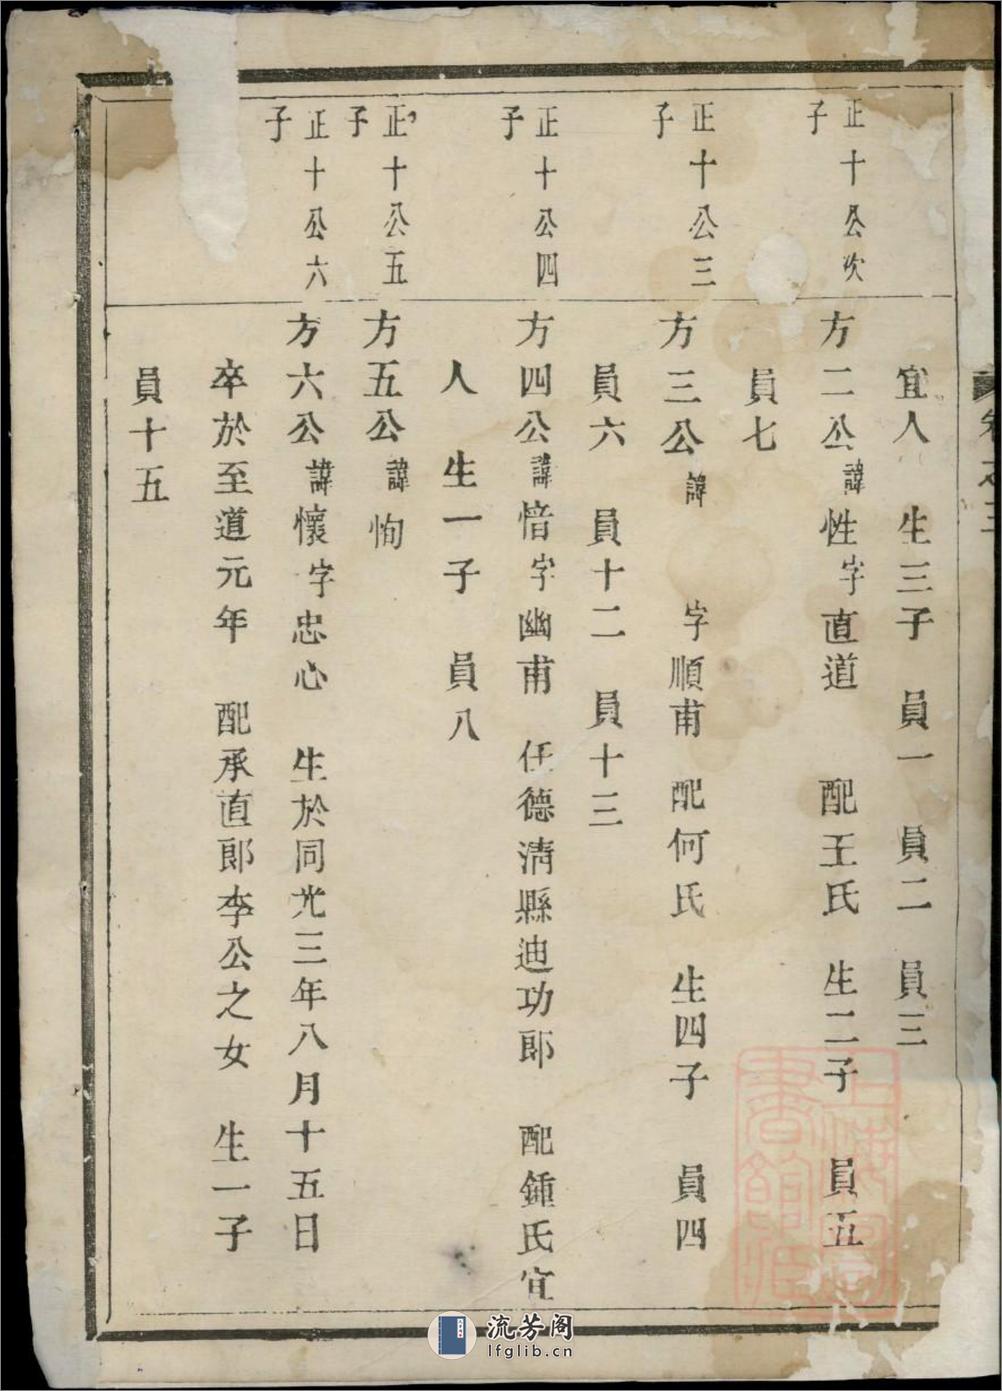 卷之三
宜人 生三子 員一 員二 員三
正十公次
子
方二公諱性字直道 配王氏 生二子 員五
員七
正十公三
子
方三公諱 字順甫 配何氏 生四子 員四
員六 員十二 員十三
正十公四
子
方四公諱愔字幽甫 任德淸縣迪功郎 配鍾氏宜
人 生一子 員八
正十公五
子
方五公諱恂
正十公六
子
方六公諱懷字忠心 生於同光三年八月十五日
卒於至道元年 配承直郎李公之女 生一子
員十五
上海圖書館藏
流芳阁
lfglib.cn